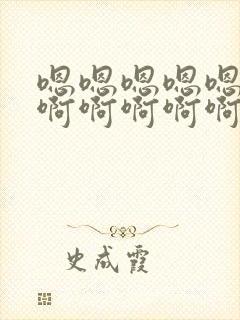 嗯嗯嗯嗯嗯
啊啊啊啊啊
史成霞